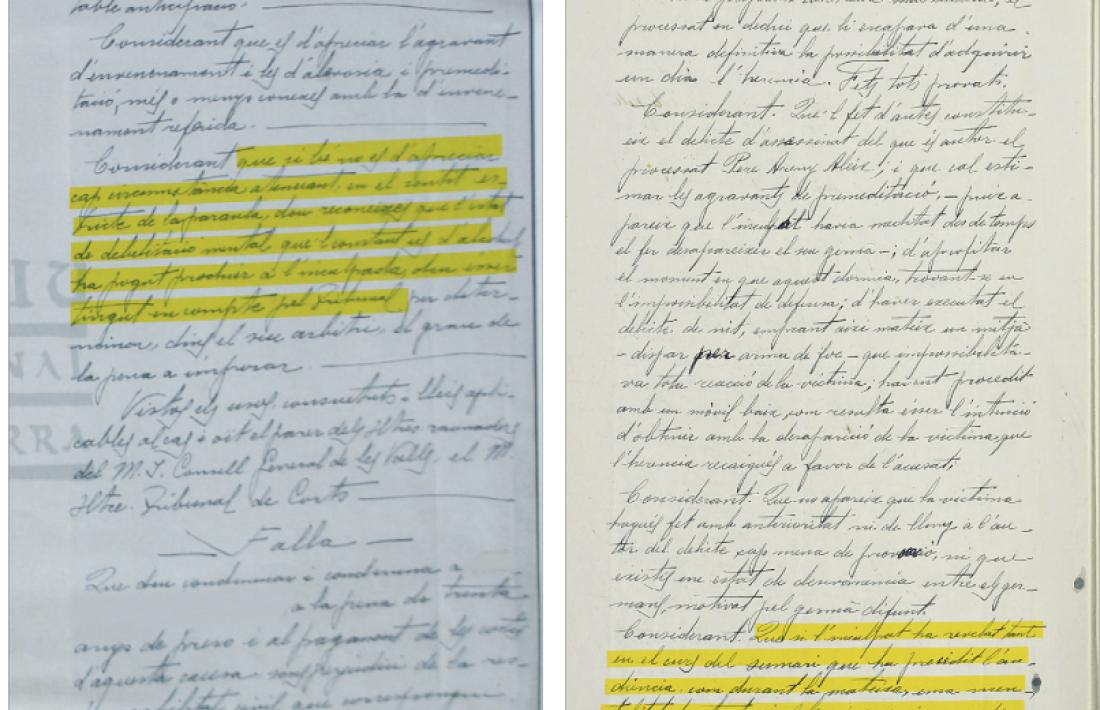 table anticipació.
Considerant que es d'apreciar l'agravant
d'enverenament i les d'alevosia i premedi-
tació, més o menys conexes amb la d'envere-
nament referida.
Considerant que si bé no es d'apreciar
cap circumstància atenuant, en el sentit es-
tricte de la paraula, deu reconeixer que l'estat
de debilitació mental, que l'constant us d'alcohol
ha pogut produir a l'inculpada, deu ésser
tingut en compte pel Tribunal per deter-
minar, dins el seu arbitri, el grau de
la pena a imposar.
Vistos els usos, consuetuts i lleis apli-
cables al cas i oit el parer dels Iltres raonadors
del M. I. Consell General de les Valls, el M.
Iltre. Tribunal de Corts
Falla
Que deu condemnar i condemna a
a la pena de trenta
anys de preso i al pagament de les costes
d'aquesta causa sens perjudici de la res-
ponsabilitat civil que correspongui
processat en deduí que li escapara d'una
manera definitiva la possibilitat d'adquirir
un dia l'herencia. Fets tots provats.
Considerant. Que'l fet d'autes constitu-
eix el delicte d'assassinat del que és author el
processat Pere Areny Aleix; i que cal esti-
mar les agravants de premeditació, – puix a-
pareix que l'inculpat havia meditat des de temps
el fer desapareixer el seu germà –; d'aprofitar
el moment en que aquest dormia, trovant-se en
l'impossibilitat de defensa; d'haver executat el
delicte, de nit, emprant aixi mateix un mitjà
– dispar per arma de foc – que impossibilità-
va tota reacció de la victima; havent procedit
amb un mòvil baix, com resulta ésser l'intenció
d'obtenir amb la desaparició de la victima, que
l'herencia recaigués a favor de l'acusat;
Considerant. Que no apareix que la victima
hagués fet amb anterioritat ni de lluny a l'au-
tor del delicte cap mena de provocació, ni que
existís un estat de desavinencia entre els ger-
mans, motivat pel germà difunt.
Considerant. Que si l'inculpat ha revelat tant
en el curs del sumari que ha presidit l'au-
diència, com durant la mateixa, una men-